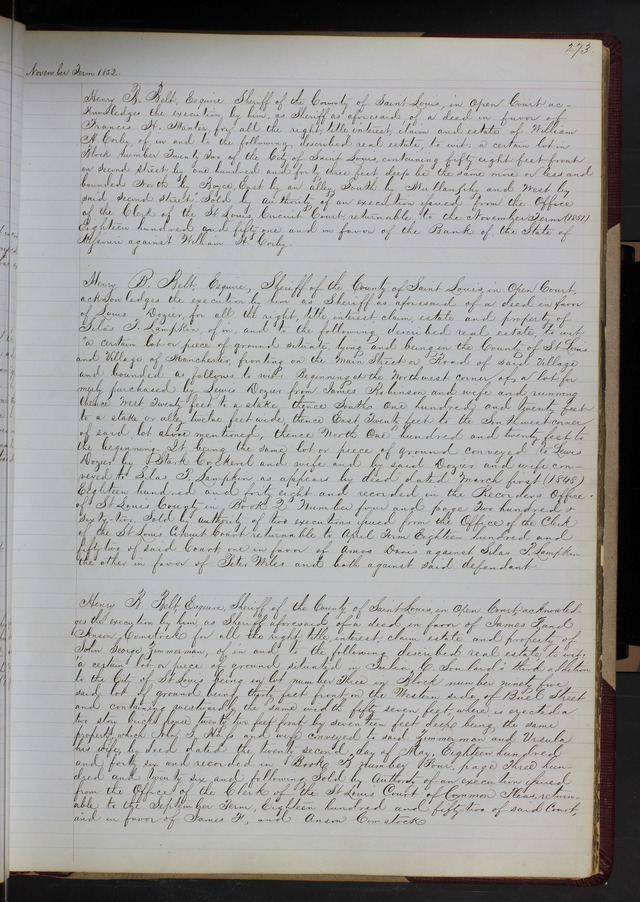 273.
November Term 1852.
Henry B. Belt, Esquire Sheriff of the County of Saint Louis, in Open Court ac-
knowledges the execution by him, as Sheriff as aforesaid of a deed in favor of
Frances H. Manter for all the right, title interest, claim and estate of William
H Corley, of in and to the following described real estate, to wit: a certain lot in
Block number Twenty two of the City of Saint Louis, containing fifty eight feet front
on second street by one hundred and forty three feet deep be the same more or less and
bounded North by Boyce, East by an alley, South by Mullanphy and West by
said second street. Sold by authority of an execution issued from the Office
of the Clerk of the St Louis Circuit Court, returnable to the November Term (1851)
Eighteen hundred and fifty one and in favor of the Bank of the State of
Missouri against William H Corley.
Henry B. Belt, Esquire, Sheriff of the County of Saint Louis in Open Court,
acknowledges the execution by him as Sheriff as aforesaid of a deed in favor
of Louis Dozier, for all the right, title, interest, claim, estate and property of
Silas T. Lampkin, of in, and to the following described real estate, to wit,
"a certain lot or piece of ground situate, lying and being in the County of St Louis
and Village of Manchester, fronting on the Main Street or Road of said Village
and bounded as follows to wit: Beginning at the Northwest corner of a lot for
merly purchased by Lewis Dozier from James Robinson and wife and running
thence West Twenty feet to a stake, thence South One hundred and twenty feet
to a stake or alley twelve feet wide, thence East Twenty feet to the Southwest corner
of said lot above mentioned, thence North One hundred and twenty feet to
the beginning. It being the same lot or piece of ground conveyed to Lewis
Dozier by Stark Cockerel and wife and by said Dozier and wife con-
veyed to Silas T Lampkin as appears by deed dated March first (1848)
Eighteen hundred and forty eight and recorded in the Recorders Office
of St Louis County in Book Number four and page Two hundred &
Sixty-two. Sold by authority of two executions issued from the Office of the Clerk
of the St Louis Circuit Court returnable to April Term Eighteen hundred and
fifty two of said Court one in favor of Amos Davis against Silas T. Lampkin
the other in favor of Wiles and both against said defendant
Henry B. Belt, Esquire, Sheriff of the County of Saint Louis, in Open Court, acknowled-
ges the execution by him, as Sheriff as aforesaid of a deed, in favor of James F and
Anson Comstock for all the right, title, interest, claim estate and property of
John George Zimmerman, of in and to the following described real estate to wit:
"a certain lot or piece of ground situated in Julia C. Soulard's third addition
to the City of St Louis being in lot number Three in Block number ninety five
said lot of ground being thirty feet front on the Western side of Buel Street
and containing westwardly the same width fifty seven feet where is erected a
two story brick house twenty two feet front by seventeen feet deep being the same
property which and wife conveyed to said Zimmerman and Ursula
his wife, by deed dated the twenty second day of May, Eighteen hundred
and forty six and recorded in Book B number Four, page Three hun-
dred and Twenty six and following. Sold by Authority of an execution issued
from the Office of the Clerk of the St Louis Court of Common Pleas, return-
able to the September Term, Eighteen hundred and fifty two of said Court,
and in favor of James F, and Anson Comstock